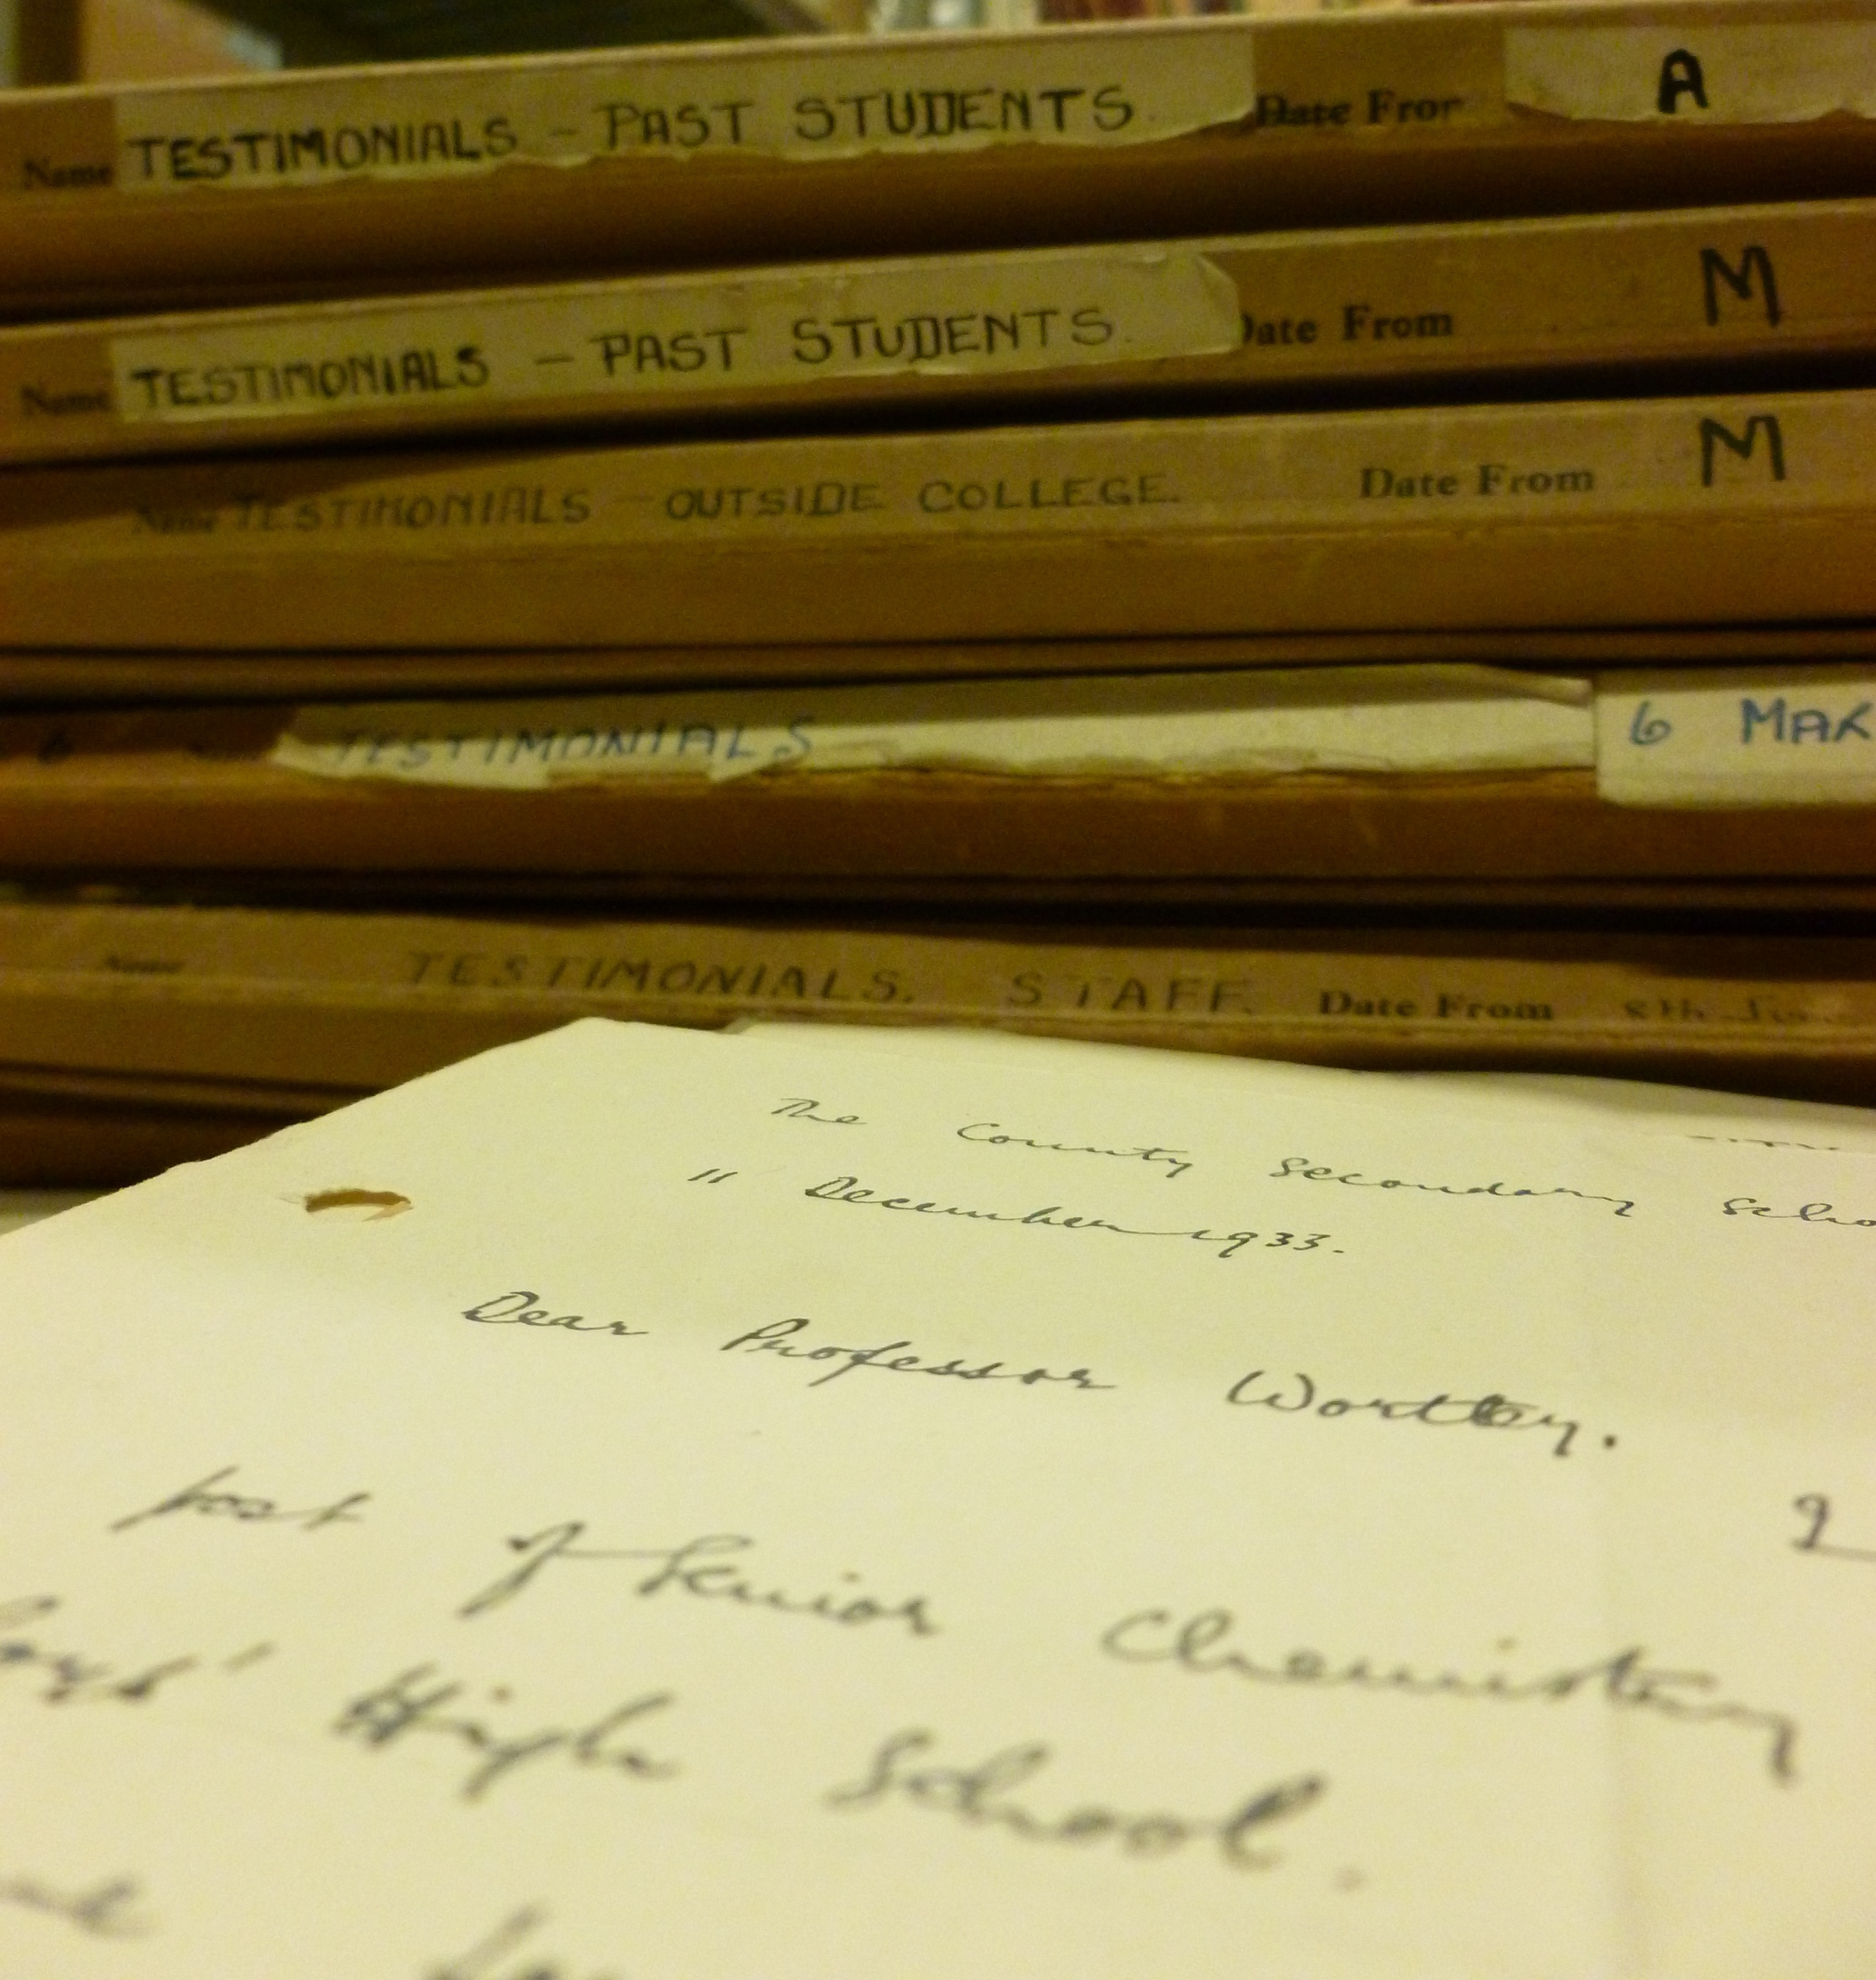 Name TESTIMONIALS - PAST STUDENTS. Date Fror A
Name TESTIMONIALS - PAST STUDENTS. Date From M
Name TESTIMONIALS - OUTSIDE COLLEGE. Date From M
TESTIMONIALS 6 MAR
Name TESTIMONIALS. STAFF. Date From 8th
The County Secondary Scho
11 December 1933.
Dear Professor Wortley.
I
post of Senior Chemistry
oys' High School.